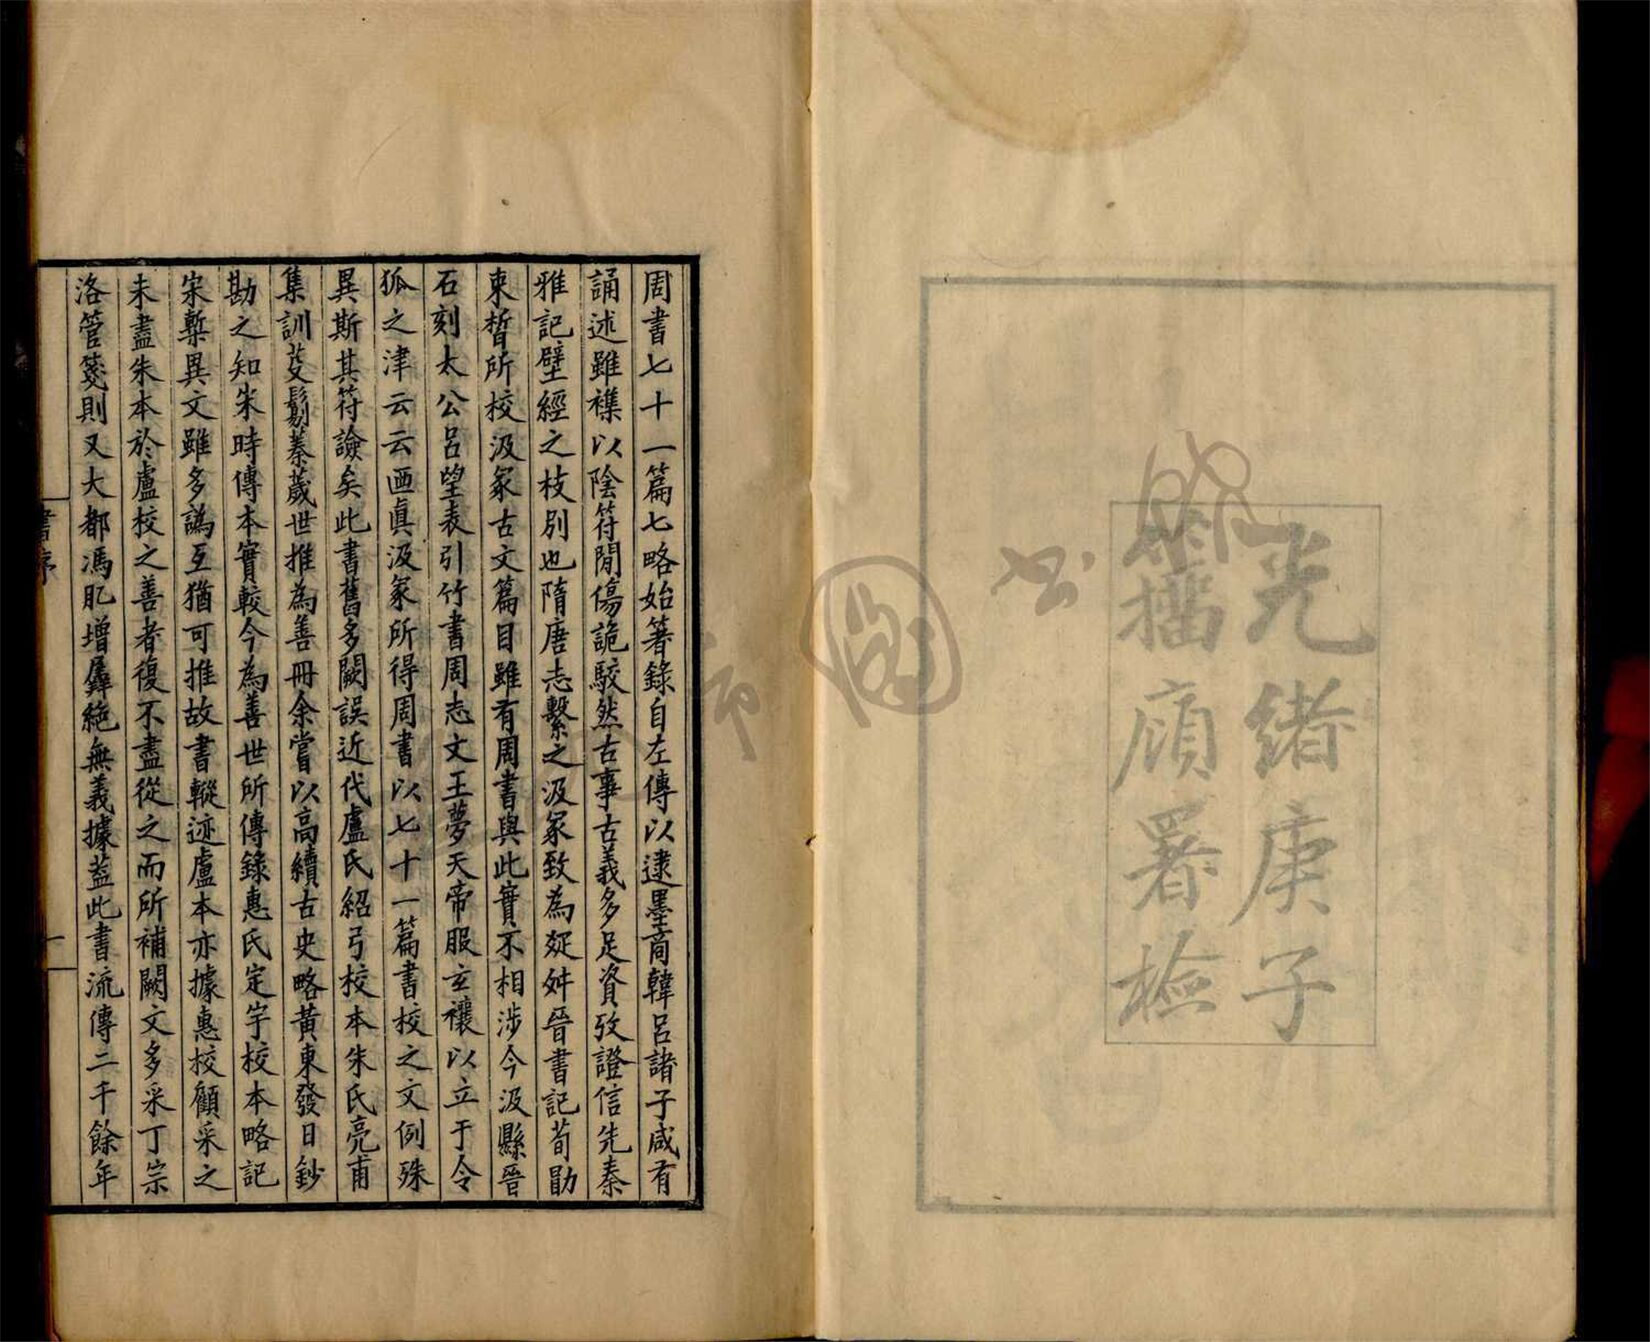 光緒庚子
籀廎署檢
周書七十一篇七略始箸錄自左傳以逮墨商韓呂諸子咸有
誦述雖襍以陰符閒傷詭駮然古事古義多足資攷證信先秦
雅記壁經之枝別也隋唐志繫之汲冢致為疑舛晉書記荀勖
束皙所校汲冢古文篇目雖有周書與此實不相涉今汲縣晉
石刻太公呂望表引竹書周志文王夢天帝服玄禳以立于令
狐之津云云迺真汲冢所得周書以七十一篇書校之文例殊
異斯其符譣矣此書舊多闕誤近代盧氏紹弓校本朱氏亮甫
集訓芟鬀蓁薉世推為善冊余嘗以高續古史略黃東發日鈔
勘之知宋時傳本實較今為善世所傳錄惠氏定宇校本略記
宋槧異文雖多譌互猶可推故書轍迹盧本亦據惠校顧采之
未盡朱本於盧校之善者復不盡從之而所補闕文多采丁宗
洛管箋則又大都馮肊增羼絕無義據葢此書流傳二千餘年
書序
一